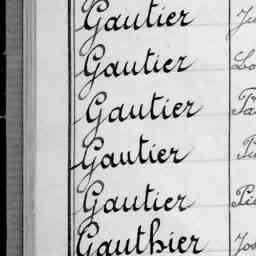 Gautier
Gautier
Gautier
Gautier
Gautier
Gauthier